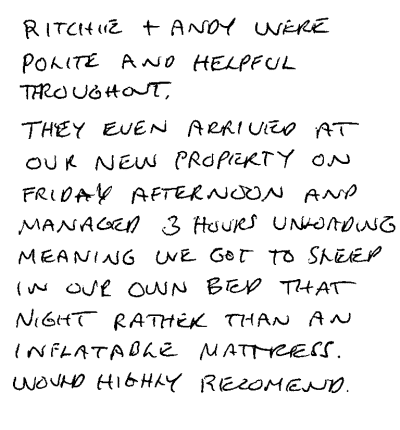 RITCHIE + ANDY WERE
POLITE AND HELPFUL
THROUGHOUT.
THEY EVEN ARRIVED AT
OUR NEW PROPERTY ON
FRIDAY AFTERNOON AND
MANAGED 3 HOURS UNLOADING
MEANING WE GOT TO SLEEP
IN OUR OWN BED THAT
NIGHT RATHER THAN AN
INFLATABLE MATTRESS.
WOULD HIGHLY RECOMEND.